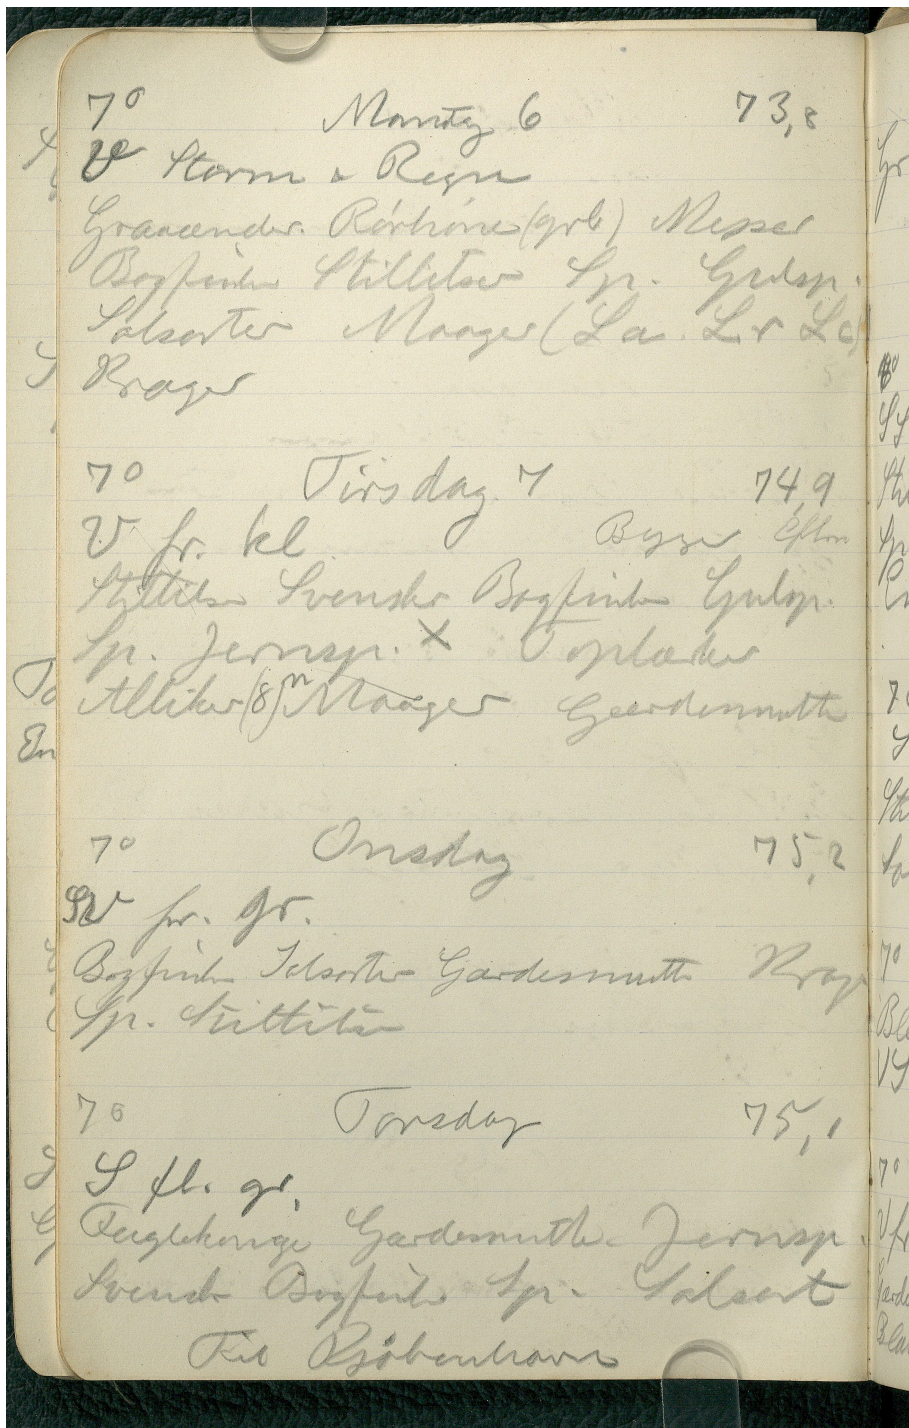 7° Mandag 6 73,8
V Storm & Regn
Graaænder. Rörhöne (grb) Mejser
Bogfinker Stillitser Sp. Gulsp.
Solsorter Maager (La. Lr Lc)
Krager
7° Tirsdag. 7 74,9
V fr. kl Byger Efterm
Stillitser Svenske Bogfinker Gulsp.
Sp. Jernsp. X Toplærker
Alliker (8) Maager Gærdesmutte
7° Onsdag 75,2
SV fr. gr.
Bogfinke Solsorter Gærdesmutte Krage
Sp. Stillitser
7° Torsdag 75,1
S fl. gr.
Fuglekonge Gærdesmutte. Jernsp.
Svenske Bogfinker Sp. Solsort
Til Kjöbenhavn